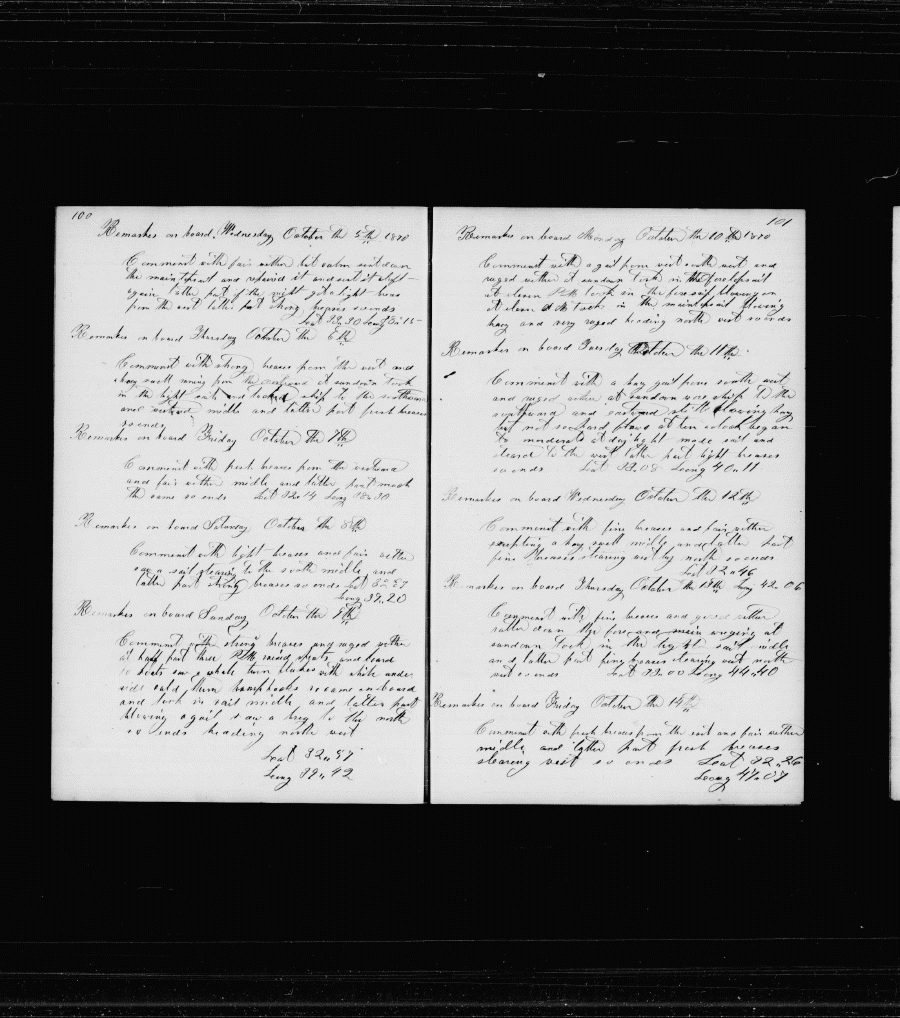 100
Remarkes on board Wednesday October the 5th 1870
Comment with fair wether but calm sent down
the maintopsail and repaired it and sent it aloft
again latter part of the night got a light breas
from the west latter part strong breases so ends
Lat 32 20 Long
Remarkes on board Thursday October the 6th
Comment with strong breases from the west and
a hevy swell runing from the at sundown took
in the light sails and ship to the southward
and westward midle and latter part fresh breases
so ends
Remarkes on board Friday October the 7th
Comment with fresh breases from the westward
and fair wether midle and latter part much
the same so ends Lat 32 14 Long 38 30
Remarkes on board Saturday October the 8th
Comment with light breases and fair wether
saw a sail stearing to the south midle and
latter part strong breases so ends Lat 32 57
Long 39 20
Remarkes on board Sunday October the 9th
Comment with strong breases and ruged wether
at half past three PM raised spouts and leard
boats saw a whale turn flukes with white under
side cald them humpbacks so came onboard
and took in sail midle and latter part
blowing a gail saw a brig to the north
so ends heading north west
Lat 32 57
Long 39 42
101
Remarkes on board Monday October the 10th 1870
Comment with a gail from west south west and
ruged wether at sundown took in the foretopsail
at eleven PM took in the foresail blowing on
at eleven AM took in the maintopsail blowing
hevy and very ruged heading north west so ends
Remarkes on board Tuesday October the 11th
Comment with a hevy gail from south west
and ruged wether at sundown wore ship to the
southward and eastward still blowing hevy
but not so hard flaws at ten oclock began
to moderate at daylight made sail and
steared to the west latter part light breases
so ends Lat 33 08 Long 40 11
Remarkes on board Wednesday October the 12th
Comment with fine breases and fair wether
excepting a hevy swell midle and latter part
fine breases stearing west by north so ends
Lat 32 46
Remarkes on board Thursday October the 13th Long 42 06
Comment with fine breases and good wether
ratler down the fore and main at
sundown took in the light sail midle
and latter part fine breases stearing west north
west so ends Lat 32 00 Long 44 40
Remarkes on board Friday October the 14th
Comment with fresh breases from the east and fair wether
midle and latter part fresh breases
stearing west so ends Lat 32 26
Long 47 07